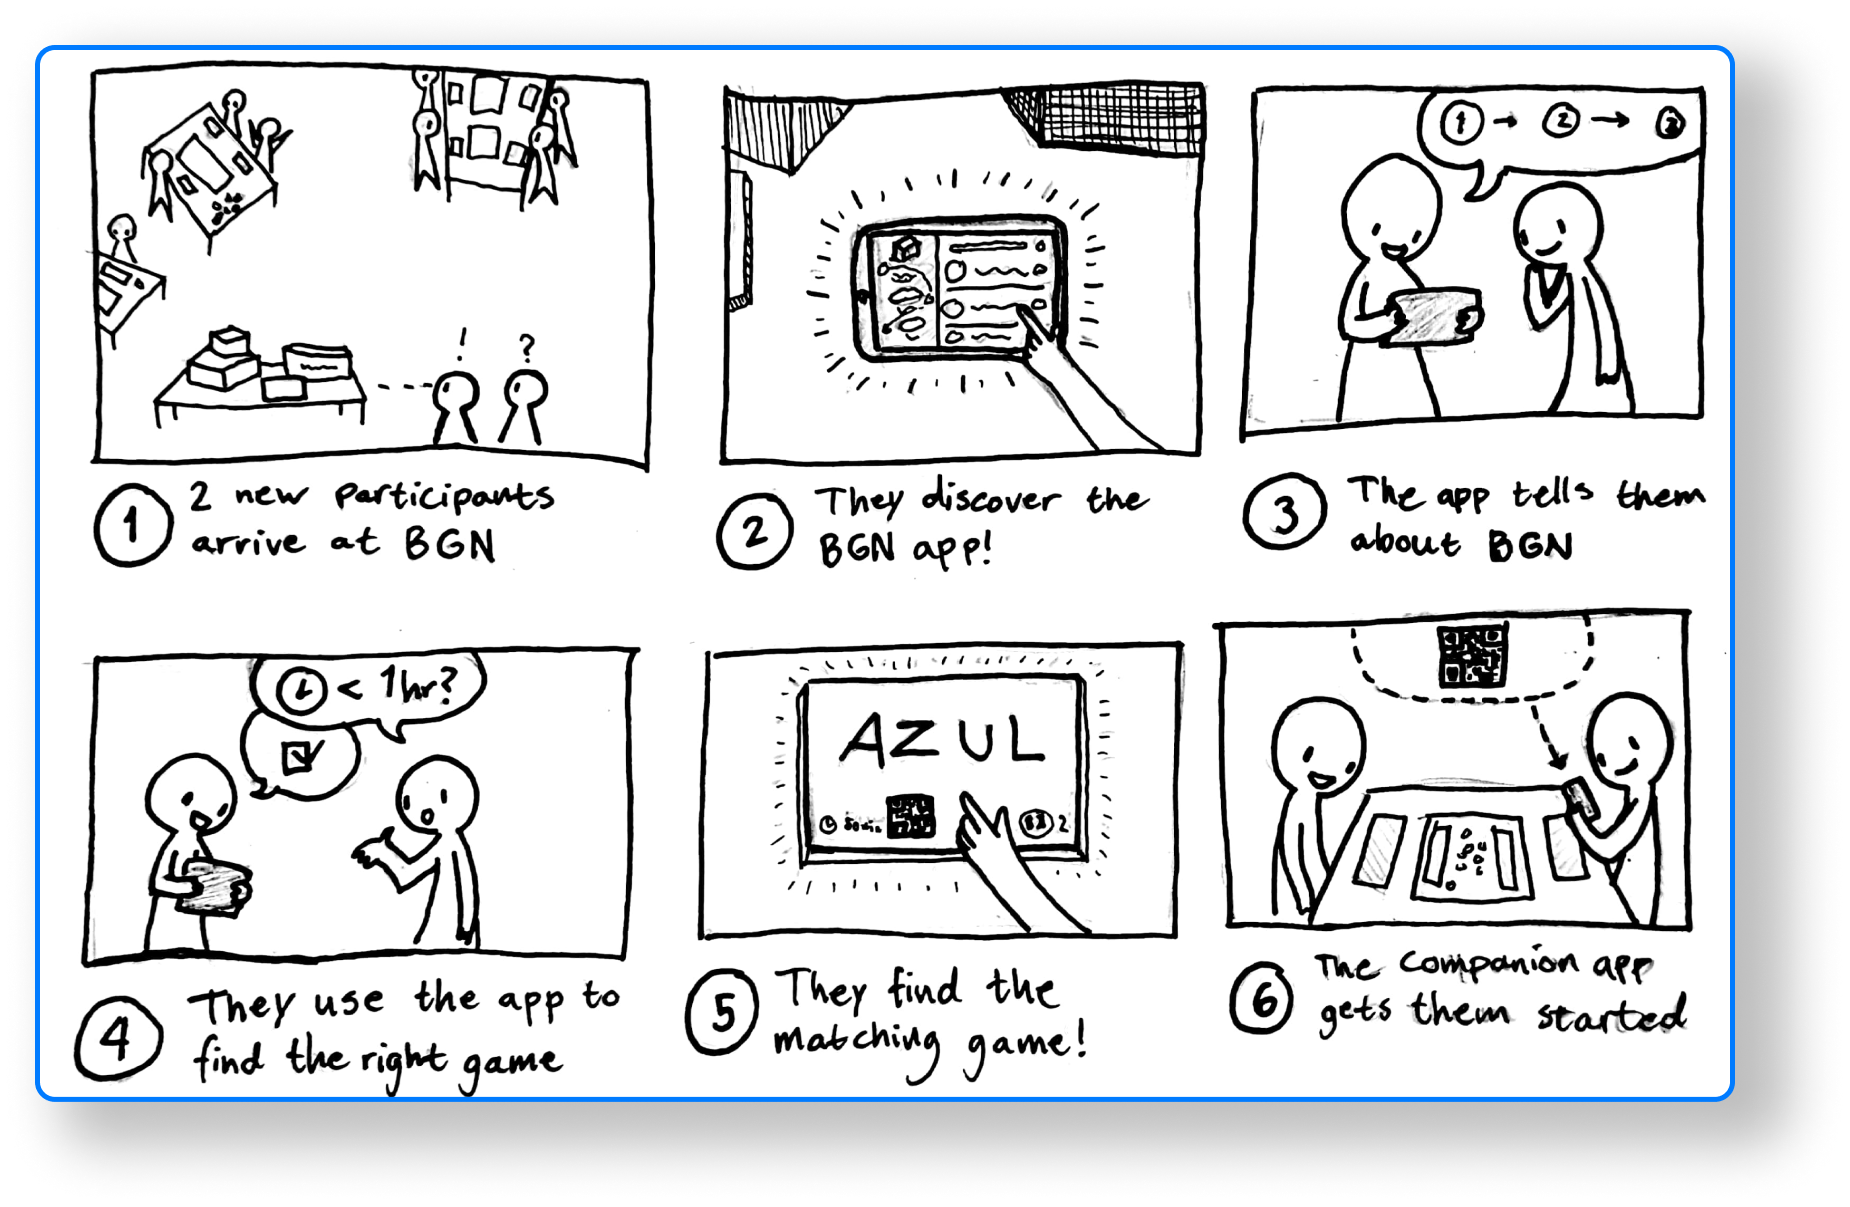 ! ?
1 2 new participants
arrive at BGN
2 They discover the
BGN app!
1 → 2 → 3
3 The app tells them
about BGN
< 1hr?
4 They use the app to
find the right game
AZUL
2
5 They find the
matching game!
6 The companion app
gets them started